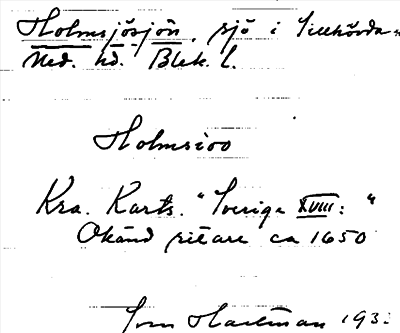 Holmsjösjön, sjö i Tillhövda
Med. hd. Blek. l.
Holmsioo
Kra. Kart. "Sverige XVIII: "
Okänd ritare ca 1650
Hartman 193